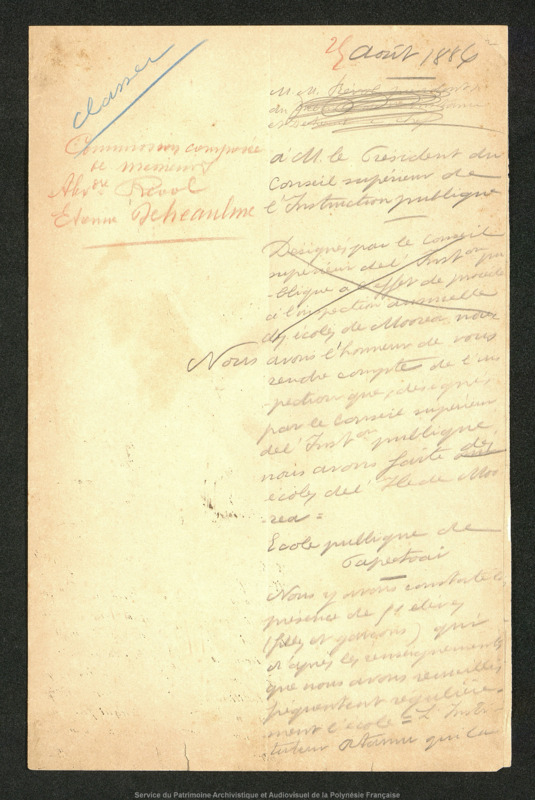 25 Août 1884
classer
Commission composée
de messieurs
Alexdre Revol
Etienne Deheaulme
à M. le Président du
Conseil supérieur de
l'Instruction publique
Désignés par le Conseil
supérieur de l'Instion pu
blique à l'effet de procéder
à l'inspection annuelle
des écoles de Moorea, nous
Nous avons l'honneur de vous
rendre compte de l'ins
pection que, désignés
par le Conseil supérieur
de l'Instion publique,
nous avons faite des
écoles de l'Ile de Moo
rea =
Ecole publique de
Papetoai
Nous y avons constaté la
présence de élèves
(filles et garçons) qui
d'après les renseignements
que nous avons recueillis
fréquentent régulière-
ment l'école = L'Insti-
tuteur qui
Service du Patrimoine Archivistique et Audiovisuel de la Polynésie Française